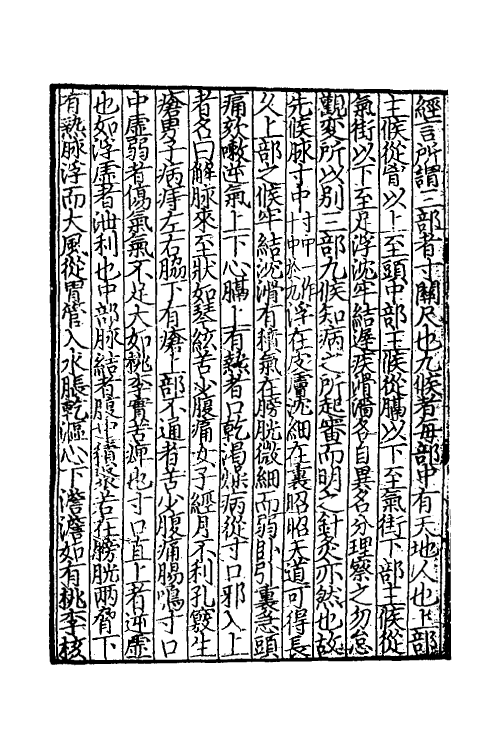 經言所謂三部者寸關尺也九候者每部中有天地人也上部
主候從胷以上至頭中部主候從膈以下至氣街下部主候從
氣街以下至足浮沈牢結遲疾滑濇各自異名分理察之勿怠
觀變所以別三部九候知病之所起審而明之針灸亦然也故
先候脉寸中寸中一作寸中於九浮在皮膚沈細在裏昭昭天道可得長
久上部之候牢結沈滑有積氣在膀胱微細而弱卧引裏急頭
痛欬嗽逆氣上下心膈上有熱者口乾渴燥病從寸口邪入上
者名曰解脉來至狀如琴絃苦少腹痛女子經月不利孔竅生
瘡男子病痔左右脇下有瘡上部不通者苦少腹痛腸鳴寸口
中虚弱者傷氣氣不足大如桃李實苦痹也寸口直上者逆虚
也如浮虚者泄利也中部脉結者腹中積聚若在膀胱兩脅下
有熱脉浮而大風從胃管入水脹乾漚心下澹澹如有桃李核